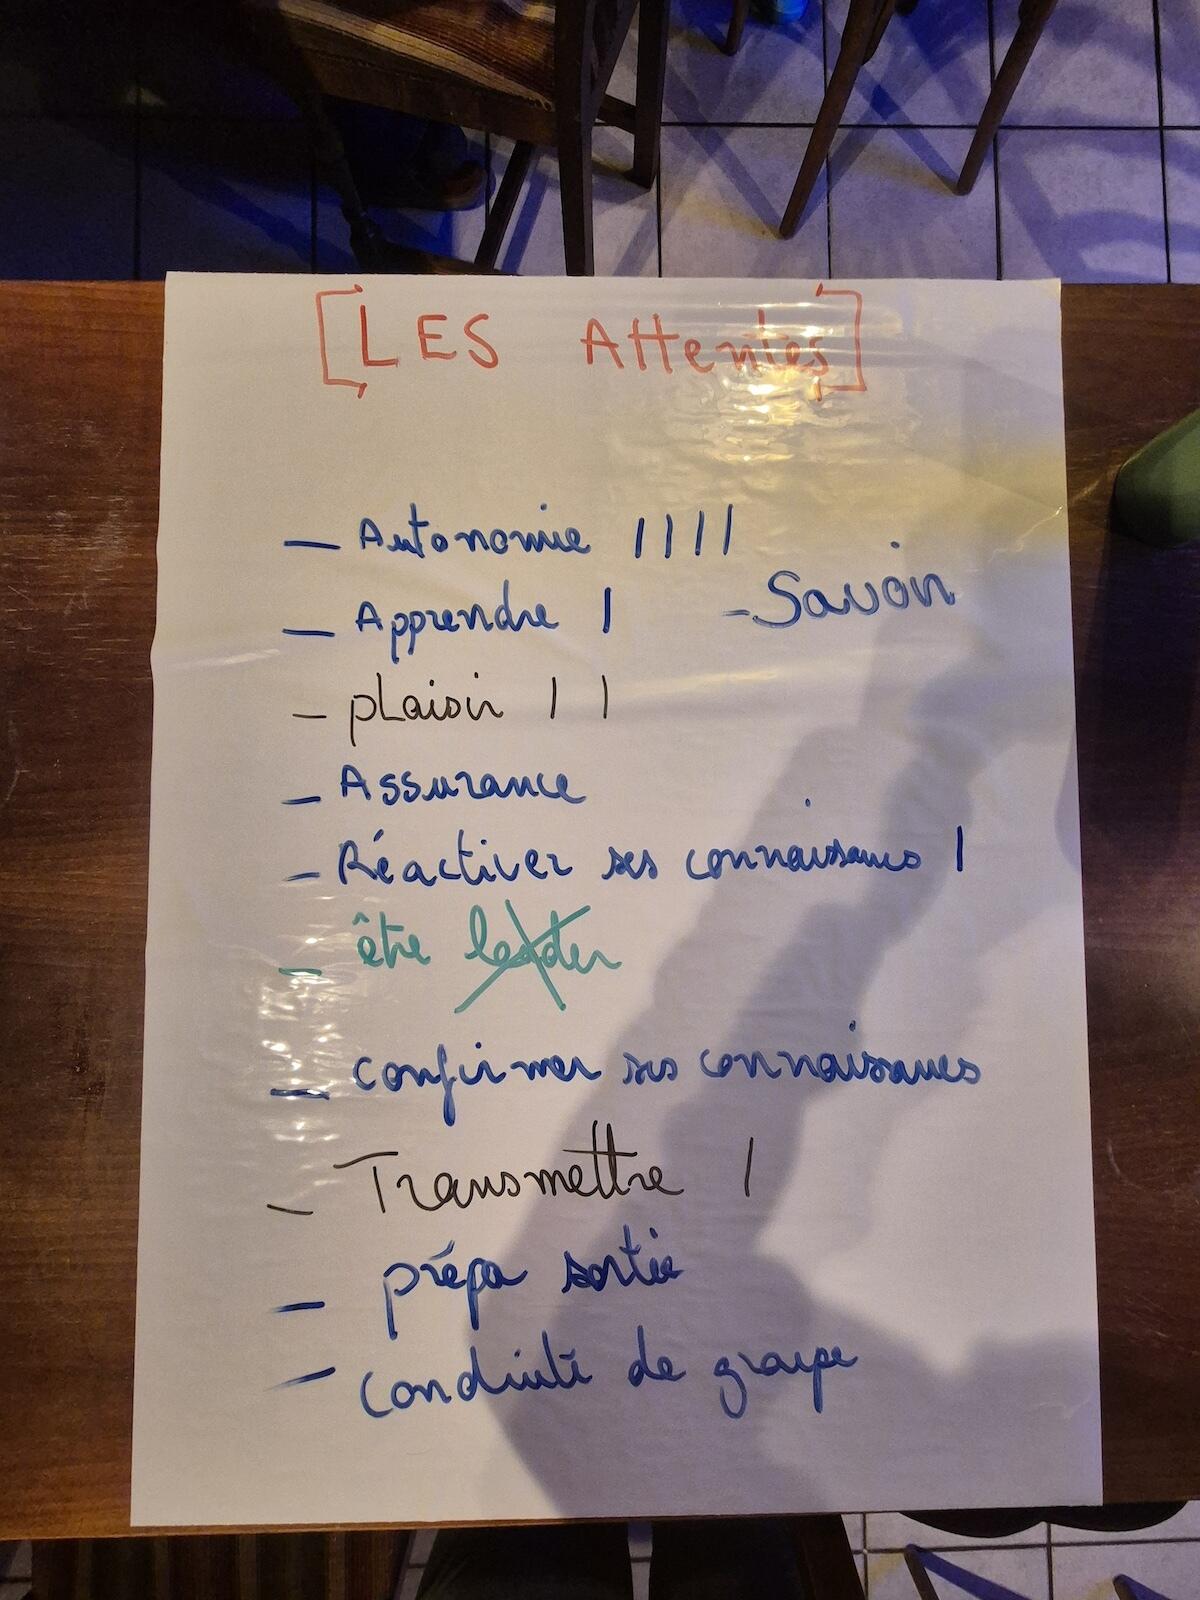 [LES Attentes]
— Autonomie ||||
— Apprendre | - Savoir
— pLaisir ||
— Assurance
— Réactiver ses connaissances |
— être leader
— confirmer ses connaissances
— Transmettre |
— prépa sortie
— conduite de groupe